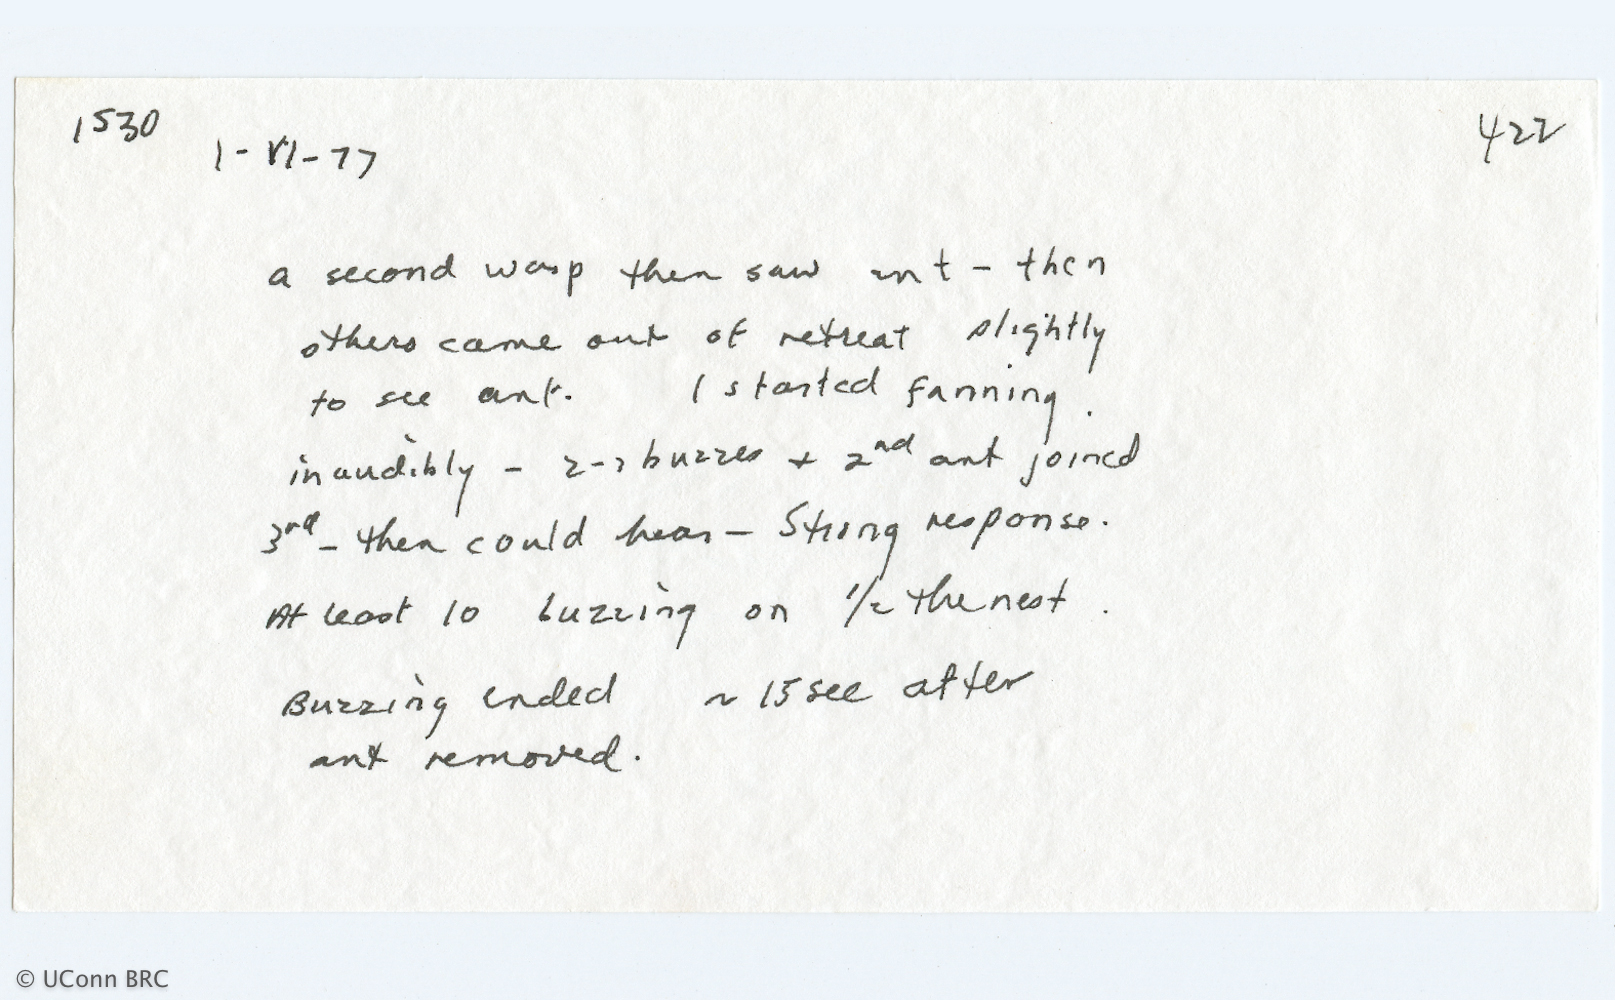 1530
1-VI-77
422
a second wasp then saw ant - then
others came out of retreat slightly
to see ant. I started fanning.
inaudibly - 2-3 buzzes + 2nd ant joined
3rd - then could hear - Strong response.
At least 10 buzzing on 1/2 the nest.
Buzzing ended ~ 15 sec after
ant removed.
© UConn BRC